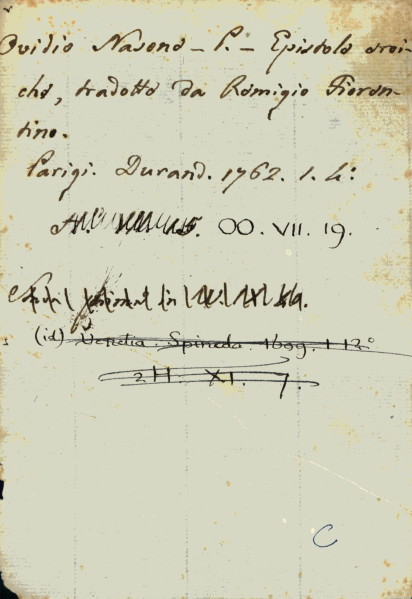 Ovidio Nasone - P. - Epistole eroi-
che, tradotte da Remigio Fioren-
tino.
Parigi. Durand. 1762. 1. 4:
OO. VII. 19.
(id) Venezia. Spineda. 1609. 1 12°
2 H. XI. 7.
C